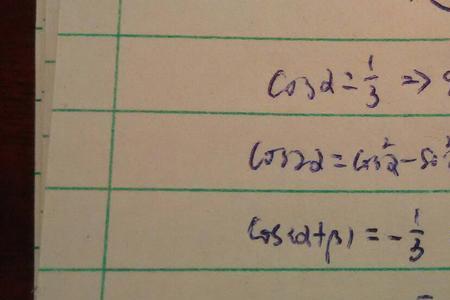 cosα = 1/3 =>
cos2α = cos²α - sin²
cos(α+β) = - 1/3